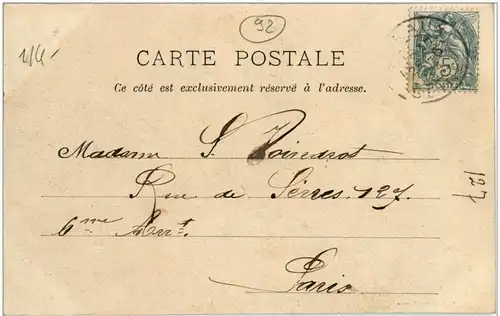 92
1/4
CARTE POSTALE
Ce côté est exclusivement réservé à l'adresse.
Madame S.
Rue de Sèvres. 127.
6me Arrt.
Paris
127